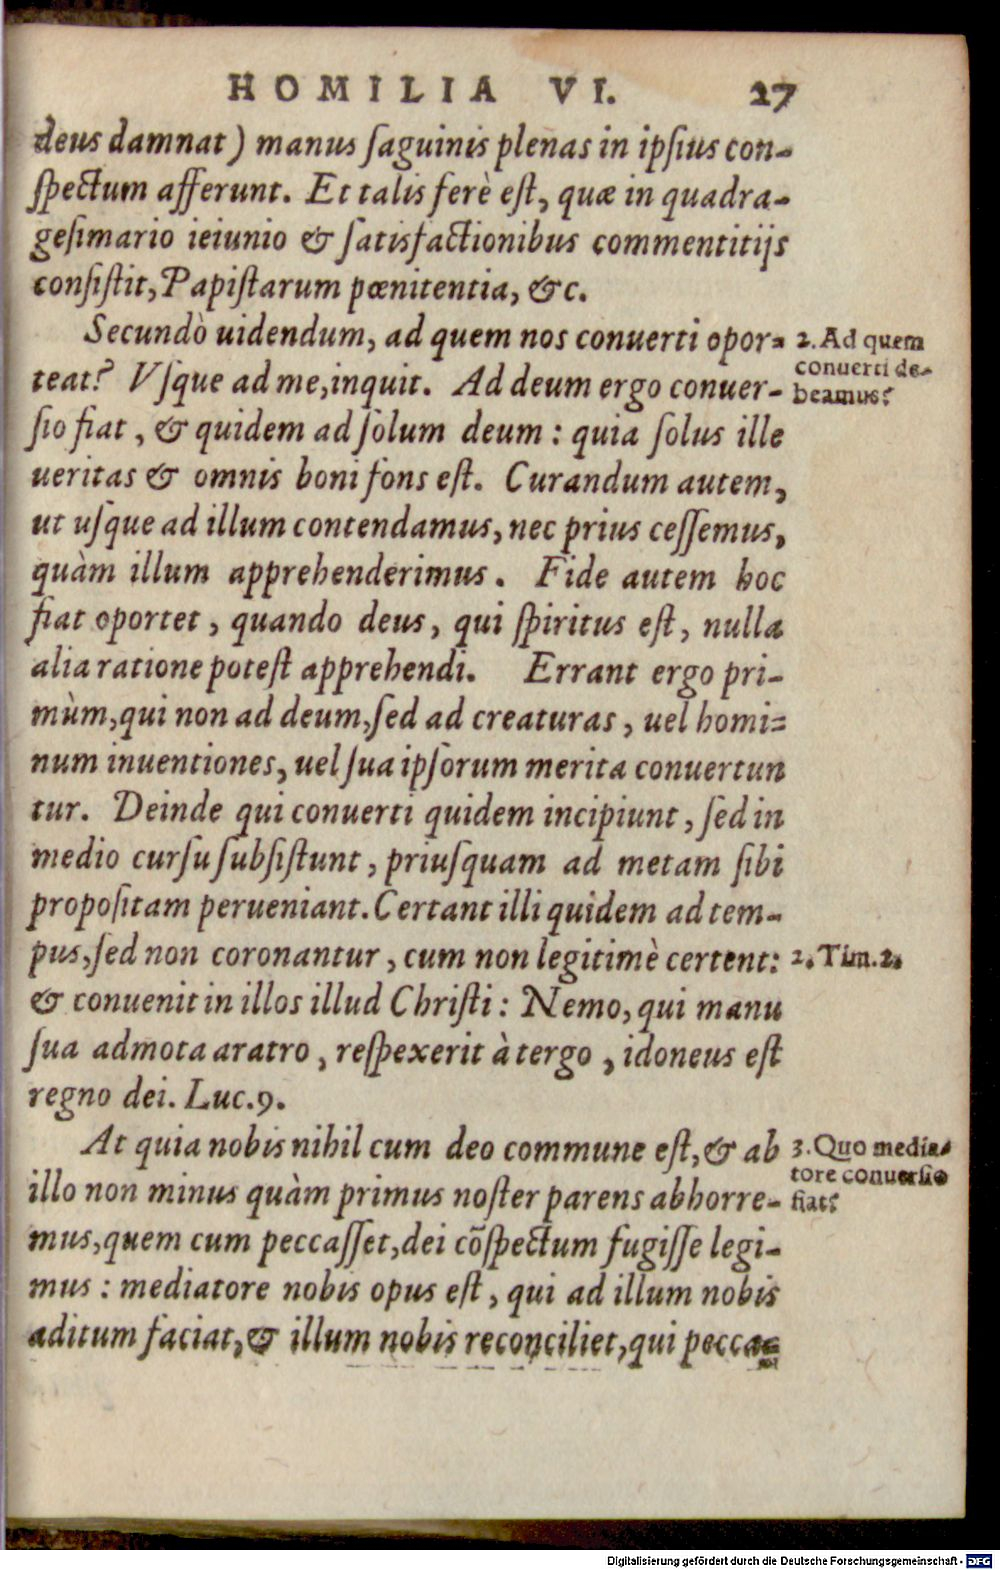 HOMILIA VI. 27
deus damnat) manus ſaguinis plenas in ipſius con-
ſpectum afferunt. Et talis ferè eſt, quæ in quadra-
geſimario ieiunio & ſatisfactionibus commentitijs
conſiſtit, Papiſtarum pœnitentia, &c.
Secundò uidendum, ad quem nos conuerti opor-
teat? Vſque ad me, inquit. Ad deum ergo conuer-
ſio fiat, & quidem ad ſolum deum: quia ſolus ille
ueritas & omnis boni fons eſt. Curandum autem,
ut uſque ad illum contendamus, nec prius ceſſemus,
quàm illum apprehenderimus. Fide autem hoc
fiat oportet, quando deus, qui ſpiritus eſt, nulla
alia ratione poteſt apprehendi. Errant ergo pri-
mùm, qui non ad deum, ſed ad creaturas, uel homi-
num inuentiones, uel ſua ipſorum merita conuertun
tur. Deinde qui conuerti quidem incipiunt, ſed in
medio curſu ſubſiſtunt, priuſquam ad metam ſibi
propoſitam perueniant. Certant illi quidem ad tem-
pus, ſed non coronantur, cum non legitimè certent:
& conuenit in illos illud Chriſti: Nemo, qui manu
ſua admota aratro, reſpexerit à tergo, idoneus eſt
regno dei. Luc.9.
At quia nobis nihil cum deo commune eſt, & ab
illo non minus quàm primus noſter parens abhorre-
mus, quem cum peccaſſet, dei cõſpectum fugiſſe legi-
mus: mediatore nobis opus eſt, qui ad illum nobis
aditum faciat, & illum nobis reconciliet, qui pecca-
2. Ad quem
conuerti de-
beamus?
2. Tim. 2.
3. Quo media-
tore conuerſio
fiat?
Digitalisierung gefördert durch die Deutsche Forschungsgemeinschaft - DFG